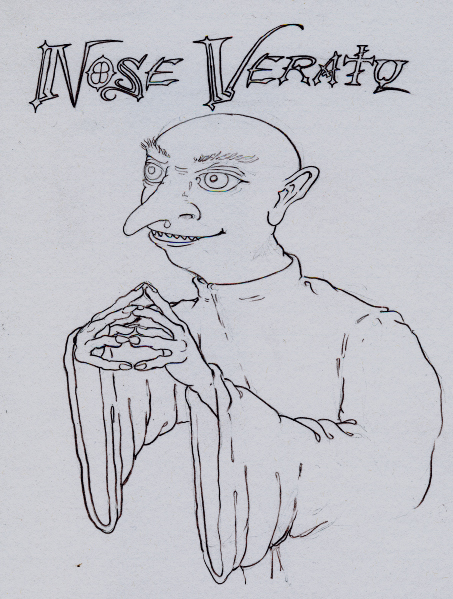 NOSE VERATU